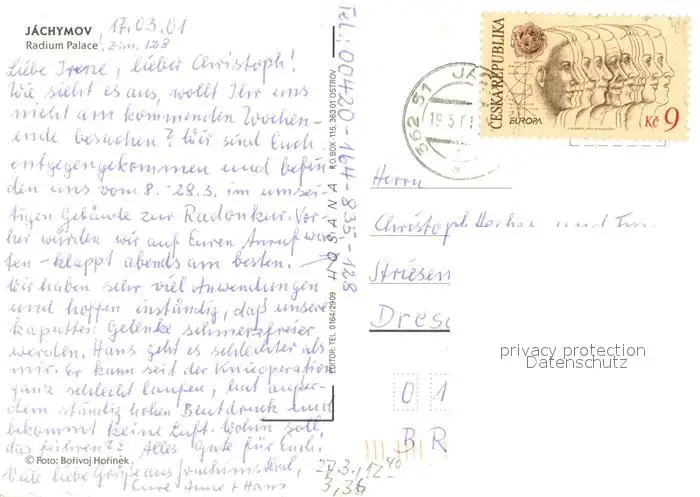 JÁCHYMOV 17.03.01
Radium Palace, Zim. 128
Liebe Irene, lieber Christoph!
Wie sieht es aus, wollt Ihr uns
nicht am kommenden Wochen-
ende besuchen? Wir sind Euch
entgegengekommen und befin
den uns vom 8. - 28.3. im umsei-
tigen Gebäude zur Radonkur. Vor-
her würden wir auf Euren Anruf war
ten - klappt abends am besten.
Wir haben sehr viel Anwendungen
und hoffen inständig, daß unsere
kaputten Gelenke schmerzfreier
werden. Hans geht es schlechter als
mir. Er kann seit der Knieoperation
ganz schlecht laufen, hat außer-
dem ständig hohen Blutdruck und
bekommt keine Luft. Wohin soll
das führen?? Alles Gute für Euch.
© Foto: Bořivoj Hořínek
Viele liebe Grüße aus Joachimsthal,
Eure Anne + Hans
Tel.: 00420-164-835-128
EDITOR: TEL. 0164/2909 HOSANA P.O.BOX-115, 363 01 OSTROV
362 51 JÁ
19.3.01
ČESKÁ REPUBLIKA
EUROPA
Kč 9
Herrn
Christoph und
Striesen
Dresd
0 1
B R
27.3., 12⁴⁰
3,36
privacy protection
Datenschutz